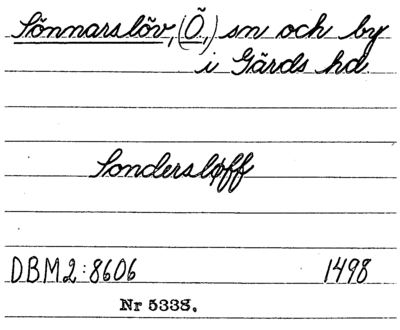 Sönnarslöv, (Ö.,) sn och by
i Gärds hd.
Sondersløff
DBM2:8606 1498
Nr 5338.